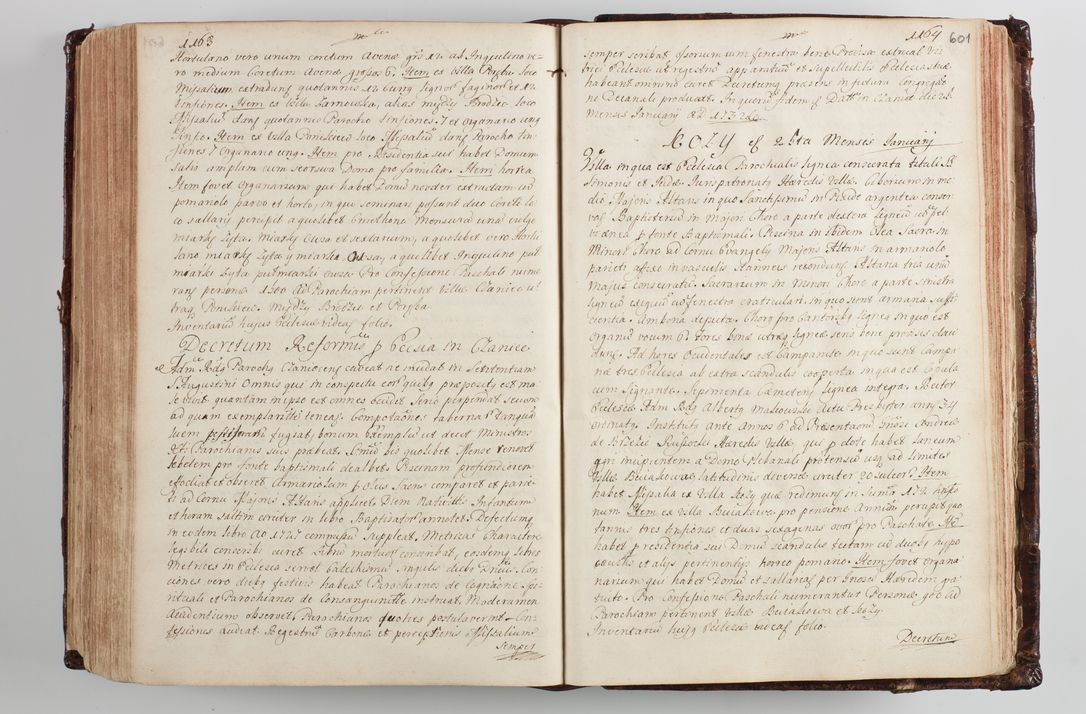 1163
Hortulano vero unum coretum Avenæ grs 12 ab Inquilino ve
ro medium Coretum avenæ grossos 6. Item ex Villa Poręba loco
Missalium extradunt quotannis 12 currus lignor faginor et 12
Tinfiones. Item ex Villa Zarnowka, alias między Brodzie loco
Missalium dant quotannis Parocho tinfiones 7 et organario ung
Tinfo. Item ex Villa Poniskiecz loco Missaliu dant Parocho tin
fiones 7 Organario ung. Item pro Residentia sui habet Domum
satis amplam cum seorsiva Domo pro familia. Item horrea
Item fovet Organarium qui habet Domu noviter extructam cu
pomariolo parvo et horto, in quo seminari possunt duo Coreti lo
co sallary percipit a quolibet Cmethone monsura una vulgo
miarkę żyta, miarkę owsa et sextarium, a quolibet vero Horti
lano miarkę żyta y miarkę owsa, a quolibet Inquilino puł
miarki żyta pułmiarki owsa Pro Confessione Paschali nume
rant personæ 1300 Ad Parochiam pertinent Villæ Czaniec u
traq Poniskiecz, między Brodzie et Poręba
Inventarium hujus Ecclesiæ videat folio.
Decretum Reformis p Ecclia in Czaniec
Adm Rndg Parochg Czaniecens caveat ne incidat in
S Augustini Omnis qui in conspectu cor quibg præpositg est ma
le vivit quantum in ipso est omnes occidet Serio perpendat
ad quam exemplaritte teneat Compotaones taberna tanqua
luem pestiferam fugiat, bonum Exemplu ut decet Ministros
Parochianis suis præbeat. bis quolibet Mense renovet
lebetem pro fonte baptismali dealbet Piscinam profundiorem
efodiat et obseret Armariolum p Oleis Sacris comparet et parie
ti ad Cornu Majoris Altaris applicet Diem Nativitt Infantium
et horam saltim circiter in libro Baptizator annotet Defectumq
in eodem libro Ao 1727 commissu suppleat Metricas Charactere
legibili conscribi curet Libru mortuor conscribat, eosdemq libros
Metrices in Ecclesia servet Catechismu singulis diebg Dnicis Con
ciones vero diebg festivis habeat Parochianos de Cognaone spi
rituali et Parochianos de Consanguinitte instruat. Moderamen
Audentium observet Parochianos quoties postulaverint Con
fessiones audiat Regestru Carbonæ et perceptionis Missalium
semper
1164 601
semper scribat Fenestra bene provisa
Ecclesiæ ut registru apparatuu et supellectilis Ecclesiasticæ
habeant omnino curet Decretumq præsens in futura Congrega
ne Decanali producat. In quoru fidem Datt in Czaniec die 26
Mensis January AD 1732do
KOZY et 26ta Mensis January
Villa in qua est Ecclesia Parochialis lignea consecrata tituli SS
Simonis et Judæ Jurispatronatq Hæredis Villæ. Ciborium in me
dio Majoris Altaris in quo Sanctissimu in Pixide argentea conser
vat Baptisterium in Majori Choro a parte dextera ligneu
p fonte Baptismali. Piscina in ibidem Olea Sacra in
Minori Choro ad Cornu Evangely Majoris Altaris in armariolo
parieti affixo in vasculis stanneis recondunt Altaria tria unu
Majus consecratu. Sacrarium in Minori Choro a parte sinistra
ligneu exiguu fenestra craticulari, in quo sunt armaria suffi
cientia. Ambona depicta. Chorg pro Cantoribg ligneg in quo est
Organu vocum 6 Fores binæ utræq ligneæ seris bene provisæ clau
dunt. Ad fores Occidentales est Campanile in quo sunt Campa
næ tres Ecclesia ab extra scandulis cooperta in qua est Copula
cum Signante. Sepimenta Cæmetery lignea integra. Rector
Ecclesiæ Adm Rndg Albertg Malicowski Actu Presbyter annor 34
Institutg ante Annos 6 ad Præsentaonem Mgci Andreæ
de Brzezie Russocki Hæredis Villæ, qui p dote habet laneum
agri incipientem a Domo Plebanali protensu usq ad limites
Villæ Bujakowa latitudinis diversæ circiter 20 sulcor. Item
habet Missalia ex Villa Kozy quæ redimunt in Summa 172
num Item ex Villa Bujakowa pro pensione Annua percipit
tannis tres tinfiones et duas sexagenas ovor pro Paschate Ite
habet pro Residentia sui Domu scandulis tectam cu duobg hypo
caustis et alys pertinentys horreo pomario. Item fovet Organa
narium qui habet Domu et sallariat per Mgcum Hæredem gra
tuite. Pro Confessione Paschali numerantur Personæ 900 ad
Parochiam pertinent Villæ Bujakowa et Kozy
Inventariu hujq Ecclesiæ videat folio.
Decretum